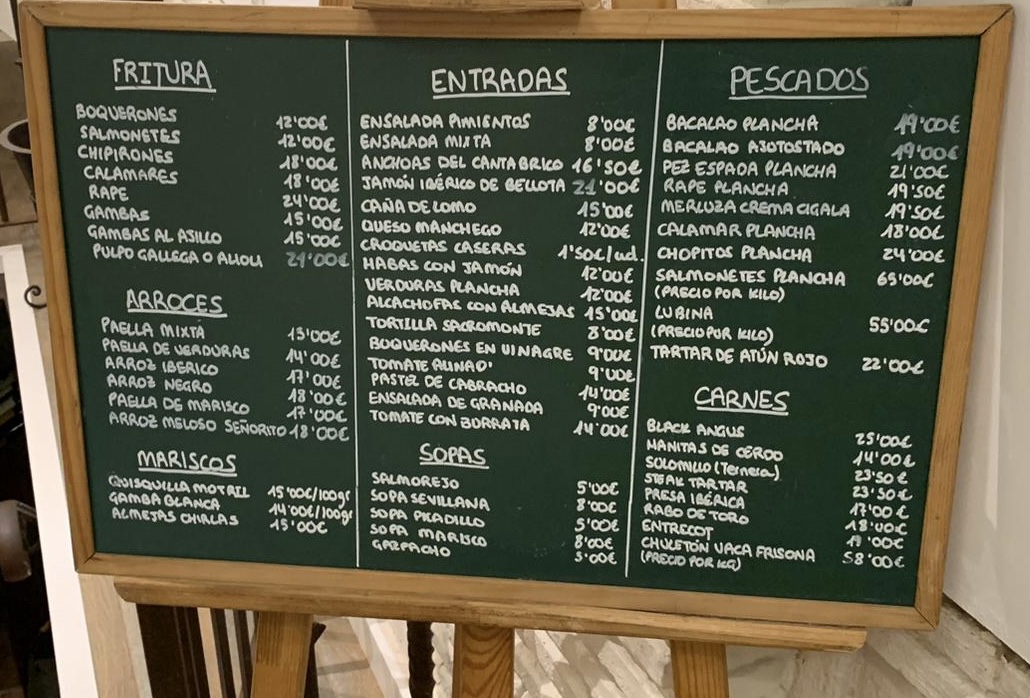 FRITURA
BOQUERONES 12'00€
SALMONETES 12'00€
CHIPIRONES 18'00€
CALAMARES 18'00€
RAPE 24'00€
GAMBAS 15'00€
GAMBAS AL AJILLO 15'00€
PULPO GALLEGA O ALIOLI 21'00€
ARROCES
PAELLA MIXTA 15'00€
PAELLA DE VERDURAS 14'00€
ARROZ IBERICO 17'00€
ARROZ NEGRO 18'00€
PAELLA DE MARISCO 17'00€
ARROZ MELOSO SEÑORITO 18'00€
MARISCOS
QUISQUILLA MOTRIL 15'00€/100gr
GAMBA BLANCA 14'00€/100gr
ALMEJAS CHIRLAS 15'00€
ENTRADAS
ENSALADA PIMIENTOS 8'00€
ENSALADA MIXTA 8'00€
ANCHOAS DEL CANTABRICO 16'50€
JAMÓN IBÉRICO DE BELLOTA 21'00€
CAÑA DE LOMO 15'00€
QUESO MANCHEGO 12'00€
CROQUETAS CASERAS 1'50€/ud.
HABAS CON JAMÓN 12'00€
VERDURAS PLANCHA 12'00€
ALCACHOFAS CON ALMEJAS 15'00€
TORTILLA SACROMONTE 8'00€
BOQUERONES EN VINAGRE 9'00€
TOMATE ALIÑAO' 9'00€
PASTEL DE CABRACHO 14'00€
ENSALADA DE GRANADA 9'00€
TOMATE CON BURRATA 14'00€
SOPAS
SALMOREJO 5'00€
SOPA SEVILLANA 8'00€
SOPA PICADILLO 5'00€
SOPA MARISCO 8'00€
GAZPACHO 5'00€
PESCADOS
BACALAO PLANCHA 19'00€
BACALAO AJOTOSTADO 19'00€
PEZ ESPADA PLANCHA 21'00€
RAPE PLANCHA 19'50€
MERLUZA CREMA CIGALA 19'50€
CALAMAR PLANCHA 18'00€
CHOPITOS PLANCHA 24'00€
SALMONETES PLANCHA 65'00€
(PRECIO POR KILO)
LUBINA 55'00€
(PRECIO POR KILO)
TARTAR DE ATÚN ROJO 22'00€
CARNES
BLACK ANGUS 25'00€
MANITAS DE CERDO 14'00€
SOLOMILLO (Ternera) 23'50€
STEAK TARTAR 23'50€
PRESA IBÉRICA 17'00€
RABO DE TORO 18'00€
ENTRECOT 19'00€
CHULETÓN VACA FRISONA 58'00€
(PRECIO POR KG)